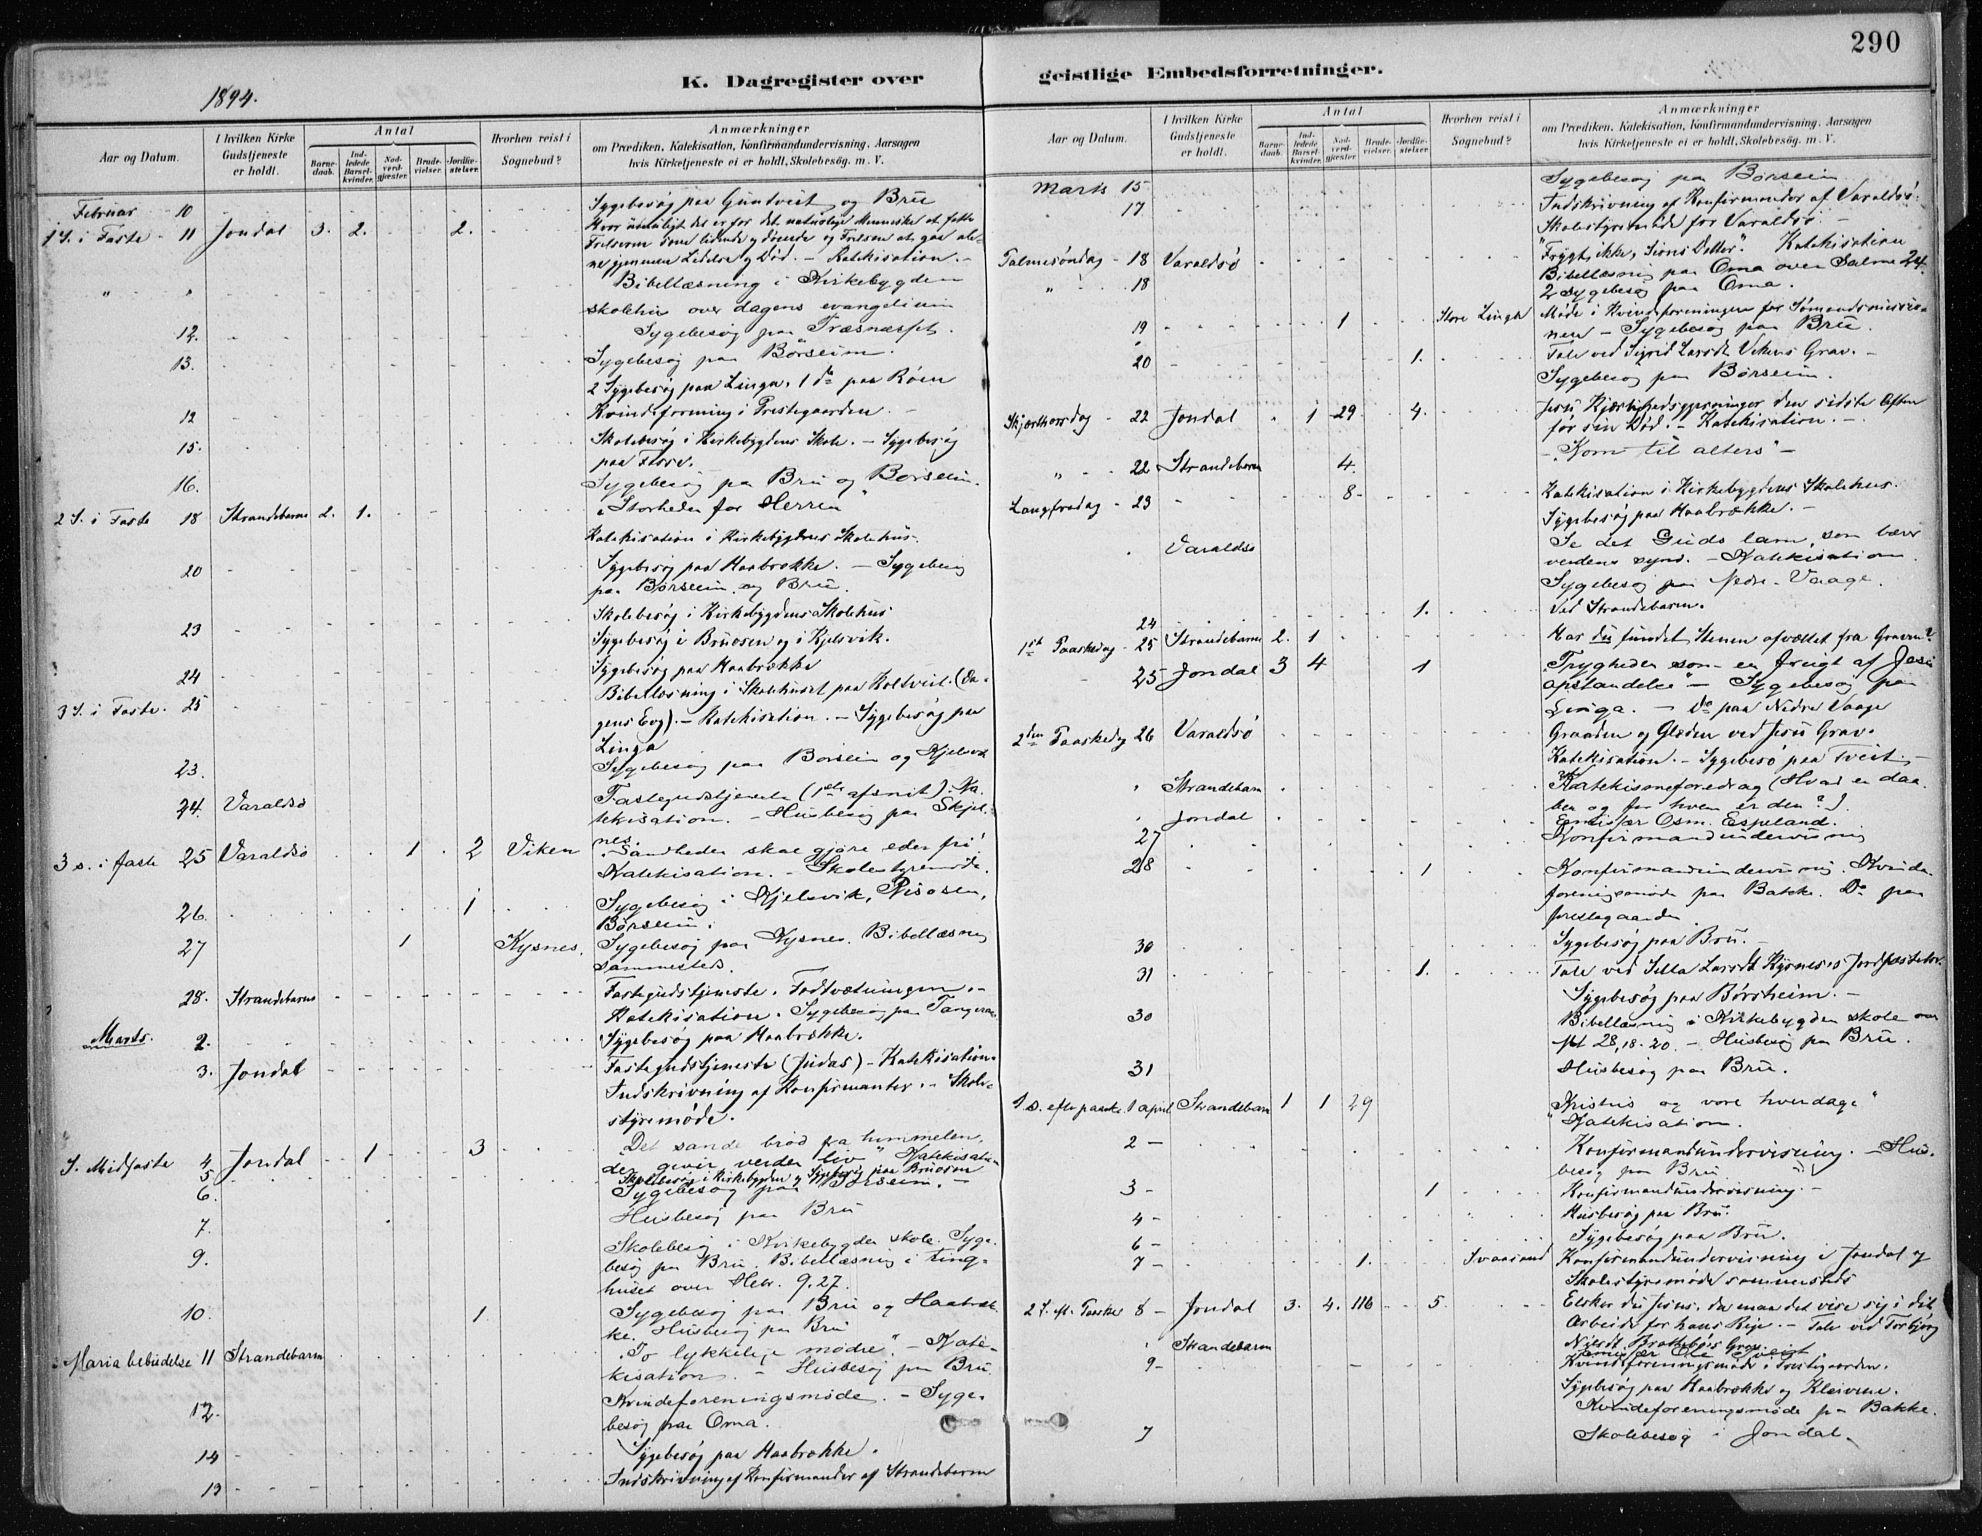 290
K. Dagregister over geistlige Embedsforretninger.
1894.
Aar og Datum.
I hvilken Kirke Gudstjeneste er holdt.
Antal
Barnedaab.
Indledede Barselkvinder.
Nadverdgjæster.
Brudevielser.
Jordfæstelser.
Hvorhen reist i Sognebud?
Anmærkninger
om Prædiken, Katekisation, Konfirmandundervisning, Aarsagen
hvis Kirketjeneste ei er holdt, Skolebesøg. m. V.
Februar 10 Sygebesøg paa Gundveit og Bru
1 S. i Faste 11 Jondal 3. 2. 2. Hvor umuligt det er for det naturlige Menneske at fatte
Frelseren som lidende og døende og Frelsen at gaa ale-
ne gjennem Lidelse og Død. - Katekisation. -
" " Bibellæsning i Kirkebygdens
skolehus over dagens evangelium
12. Sygebesøg paa Træsnæsset.
13. Sygebesøg paa Børseim.
2 Sygebesøg paa Linga, 1 do paa Røen
12 Kvindeforening i Prestegaarden. -
15. Skolebesøg i Kirkebygdens Skole. - Sygebesøg
paa Fosse.
16. Sygebesøg paa Bru og Børseim.
2 S. i Faste 18 Strandebarm 2. 1. "Storheden for Herren"
Katekisation i Kirkebygdens Skolehus.
20 Sygebesøg paa Haabrække. - Sygebesøg
paa Børseim og Bru.
Skolebesøg i Kirkebygdens Skolehus
23 Sygebesøg i Bruosen og i Kjelsvik.
24 Sygebesøg paa Haabrække
3 S. i Faste. 25 Bibellæsning i Skolehuset paa Koltveit. (Da-
gens Evg). - Katekisation. - Sygebesøg paa
Linga
23. Sygebesøg paa Børseim og Kjelsvik
24. Varaldsø Fastegudstjeneste (1ste afsnit). Ka-
tekisation. - Husbesøg paa Skjel-
nes.
3 s. i faste 25 Varaldsø 1 2 Viken "Sandheden skal gjøre eder fri"
Katekisation. - Skolestyremøde.
26. 1 Sygebesøg i Kjelsvik, Risosen,
Børseim.
27 1 Kysnes. Sygebesøg paa Kysnes. Bibellæsning
sammesteds.
28. Strandebarm Fastegudstjeneste. Fodtvætningen. -
Katekisation. Sygebesøg paa Tangeraas
Marts. 2. Sygebesøg paa Haabrække.
3. Jondal Fastegudstjeneste (Judas) - Katekisation
Indskrivning af Konfirmanter. - Skole-
styremøde.
S. Midfaste 4 Jondal 1 3 "Det sande brød fra himmelen,
der giver verden liv" Katekisation
5 Skolebesøg i Kirkebygden og Sygebesøg paa Bruosen
6. Sygebesøg paa Børseim. -
7. Husbesøg paa Bru
9. Skolebesøg i Kirkebygdens skole. Syge-
besøg paa Bru. Bibellæsning i ting-
huset over Hebr. 9.27.
10. 1 Sygebesøg paa Bru og Haabræk-
ke. Husbesøg paa Bru
Maria bebudelse 11 Strandebarm "To lykkelige mødre". - Kate-
kisation. - Husbesøg paa Bru
12. Kvindeforeningsmøde. - Syge-
besøg paa Oma.
14 Sygebesøg paa Haabrække.
13 Indskrivning af Konfirmander af Strandebarm
Aar og Datum.
I hvilken Kirke Gudstjeneste er holdt.
Antal
Barnedaab.
Indledede Barselkvinder.
Nadverdgjæster.
Brudevielser.
Jordfæstelser.
Hvorhen reist i Sognebud?
Anmærkninger
om Prædiken, Katekisation, Konfirmandundervisning, Aarsagen
hvis Kirketjeneste ei er holdt, Skolebesøg. m. V.
Marts 15 Sygebesøg paa Børseim
17 Indskrivning af Konfirmander af Varaldsø.
Skolestyremøde for Varaldsø -
Palmesøndag 18 Varaldsø "Frygt ikke, Sions Datter". Katekisation
" 18 Bibellæsning paa Oma over Salme 24.
2 Sygebesøg paa Oma.
19 1 Store Linga Møde i Kvindeforeningen for Sømandsmissio-
nen - Sygebesøg paa Bru.
20 1. Tale ved Sigrid Larsdt Vikens Grav. -
Sygebesøg paa Børseim.
Skjærthorsdag 22 Jondal 1 29 4. Jesu Kjærlighedsgjerninger den sidste Aften
før sin Død. - Katekisation. -
" 22 Strandebarm 4. - "Kom til alters" -
Langfredag 23 8 Katekisation i Kirkebygdens Skolehus.
Sygebesøg paa Haabrække. -
Varaldsø Se det Guds lam, som bærer
verdens synd. - Katekisation
Sygebesøg paa Nedre Vaage.
24 1. Ved Strandebarm.
1ste Paaskedag 25 Strandebarm 2. 1 Har du fundet Stenen afvæltet fra Graven?
25 Jondal 3 4 1 Trygheden som en frugt af Jesu
opstandelse" - Sygebesøg paa
Linga. - Do paa Nedre Vaage
2den Paaskedag 26 Varaldsø Graaden og Glæden ved Jesu Grav.
Katekisation. - Sygebesø paa Tveit. -
Strandebarm Katekisæforedrag (Hvad er daa-
ben og for hvem er den?).
Jondal Emissær Osm. Espeland.
27 Konfirmandundervisning
28 1 Konfirmandundervisning. Kvinde-
foreningsmøde paa Bakke. Do paa
prestegaarden
30 Sygebesøg paa Bru. -
31 1. Tale ved Larsdt Kysnes's Jordfæstelse.
Sygebesøg paa Børsheim. -
30 Bibellæsning i Kirkebygdens skole over
Mt 28, 18-20. - Husbesøg paa Bru.
31 Husbesøg paa Bru.
1 s. efter paaske 1 april Strandebarm 1 1 29 "Kristus og vore hverdage"
Katekisation.
2 - Konfirmandundervisning. - Hus-
besøg paa Bru
3 - 1 Konfirmandundervisning. -
4 - Husbesøg paa Bru.
6 - Sygebesøg paa Bru.
7 - 1. Svaasand Konfirmandundervisning i Jondal og
Skolestyremøde sammesteds
2 S. e. Paaske 8 - Jondal 3. 4. 116 5. Elsker du Jesus, da maa det vise sig i dit
Arbeide for hans Rige. - Tale ved Torbjørg
Nilsdt Brattebøs Grav.
Strandebarm Emissær Ole Tveit.
9 - Kvindeforeningsmøde i Prestegaarden.
Sygebesøg paa Haabrække og Kleivene.
Kvindeforeningsmøde paa Bakke.
7 Skolebesøg i Jondal.